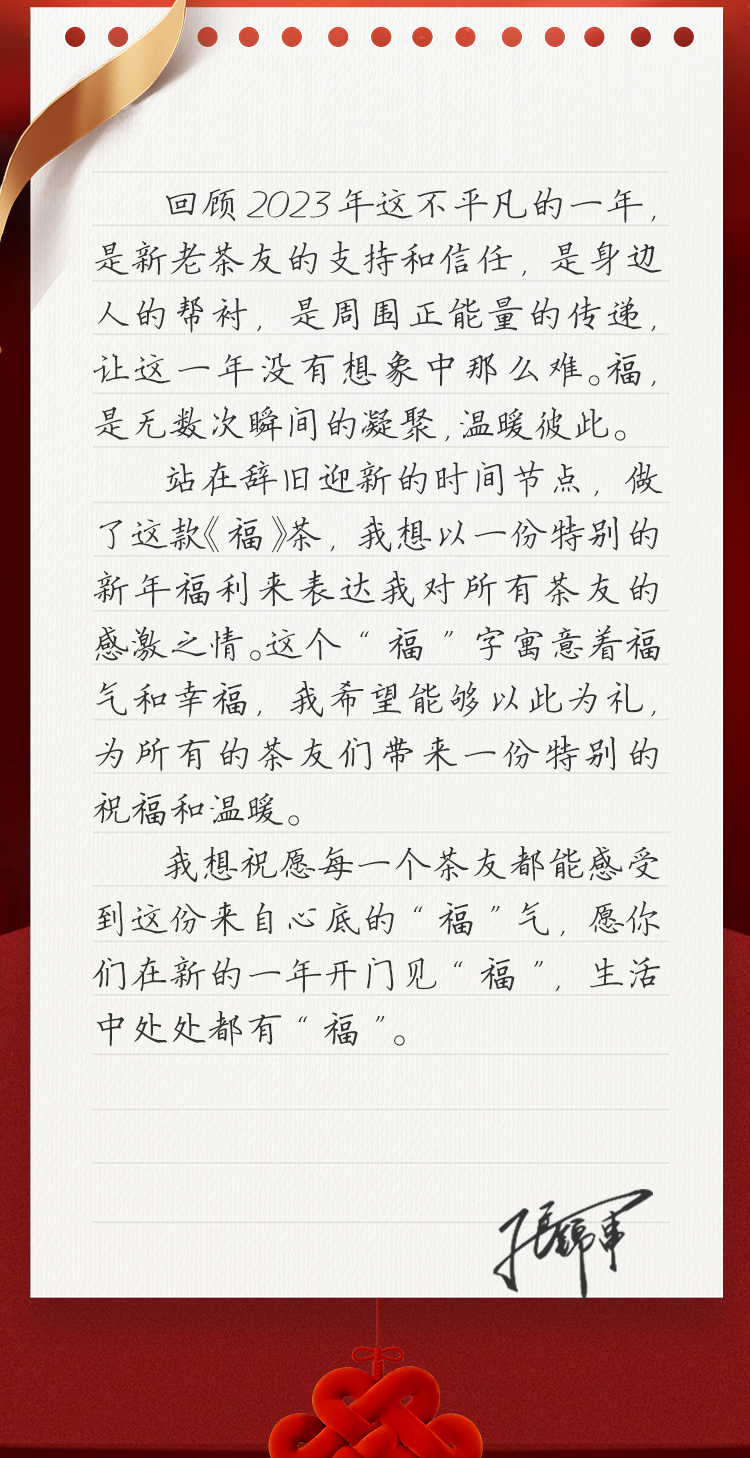 回顾2023年这不平凡的一年，
是新老茶友的支持和信任，是身边
人的帮衬，是周围正能量的传递，
让这一年没有想象中那么难。福，
是无数次瞬间的凝聚，温暖彼此。
站在辞旧迎新的时间节点，做
了这款《福》茶，我想以一份特别的
新年福利来表达我对所有茶友的
感激之情。这个“福”字寓意着福
气和幸福，我希望能够以此为礼，
为所有的茶友们带来一份特别的
祝福和温暖。
我想祝愿每一个茶友都能感受
到这份来自心底的“福”气，愿你
们在新的一年开门见“福”，生活
中处处都有“福”。